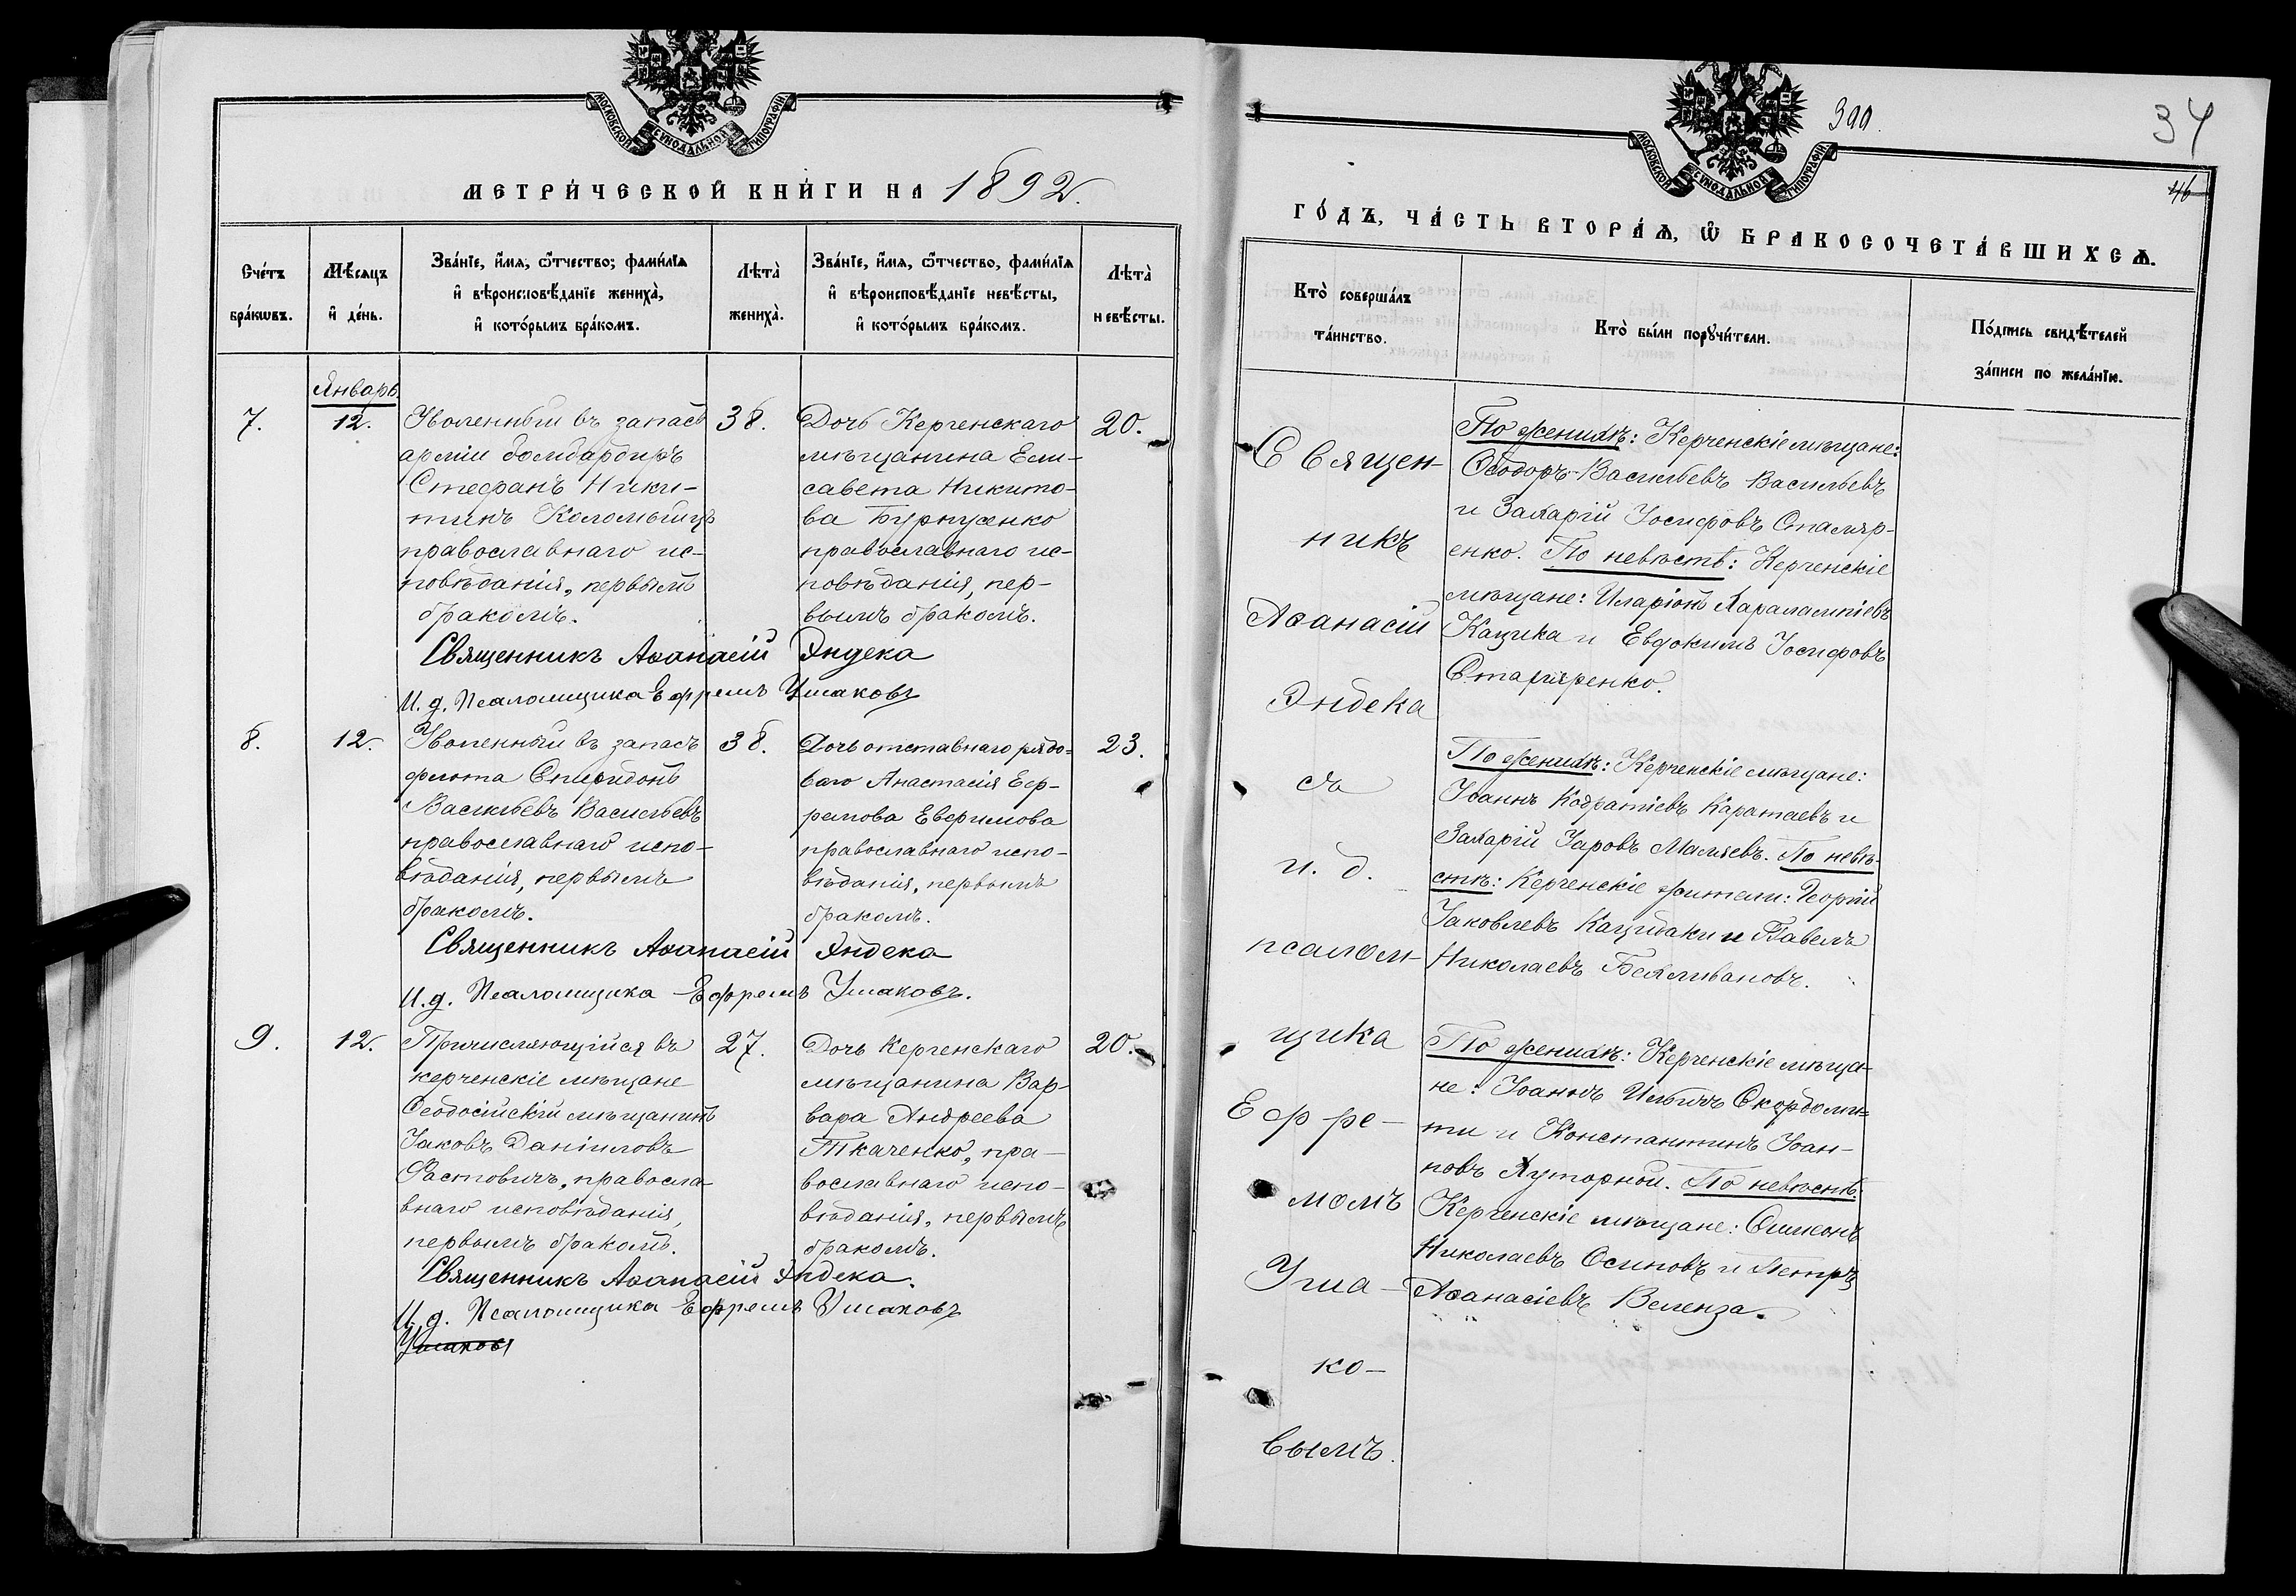 МОСКОВСКОЙ СѴНОДАЛЬНОЙ ТИПОГРАФІИ
МЕТРИ́ЧЕСКОЙ КНИ́ГИ НА 1892
Счетъ бра́кωвъ.
Мѣ́сяцъ и҆ де́нь.
Зва́нїе, и҆́мя, ѿтчество, фами́лїя
и҆ вѣроисповѣ́данїе жениха̀,
и҆ кото́рымъ бра́комъ.
Лѣта̀ жениха̀.
Зва́нїе, и҆́мя, ѿтчество, фами́лїя
и҆ вѣроисповѣ́данїе невѣ́сты,
и҆ кото́рымъ бра́комъ.
Лѣта̀ невѣ́сты.
Январь
7.
12.
Уволенный въ запасъ
арміи бомбардиръ
Стефанъ Ники-
тинъ Коломыецъ
православнаго ис-
повѣданія, первымъ
бракомъ.
38.
Дочь Керченскаго
мѣщанина Ели-
савета Никито-
ва Бурнусенко
православнаго ис-
повѣданія, пер-
вымъ бракомъ.
20.
Священникъ Аѳанасій Эндека
И. д. Псаломщика Ефремъ Ушаковъ
8.
12.
Уволенный въ запасъ
флота Спиридонъ
Васильевъ Васильевъ
православнаго испо-
вѣданія, первымъ
бракомъ.
38.
Дочь отставнаго рядо-
ваго Анастасія Еф-
ремова Евфимова
православнаго испо-
вѣданія, первымъ
бракомъ.
23.
Священникъ Аѳанасій Эндека
И. д. Псаломщика Ефремъ Ушаковъ.
9.
12.
Причисляющійся въ
керченскіе мѣщане
Ѳеодосійскій мѣщанинъ
Іаковъ Даніиловъ
Фастовичъ, правосла-
внаго исповѣданія,
первымъ бракомъ.
27.
Дочь Керченскаго
мѣщанина Вар-
вара Андреева
Ткаченко, пра-
вославнаго испо-
вѣданія, первымъ
бракомъ.
20.
Священникъ Аѳанасій Эндека.
И. д. Псаломщика Ефремъ Ушаковъ
Ушаковъ
МОСКОВСКОЙ СѴНОДАЛЬНОЙ ТИПОГРАФІИ
34
46
ГО́ДЪ, ЧА́СТЬ ВТОРА́Я, Ѡ҆ БРАКОСОЧЕТА́ВШИХСЯ.
Кто̀ соверша́лъ
та́инство.
Кто̀ бы́ли порꙋчи́тели.
По́дпись свидѣ́телей
за́писи по жела́нїю.
Священ-
никъ
Аѳанасій
Эндека
съ
и. д.
псалом-
щика
Ефре-
момъ
Уша-
ко-
вымъ.
По женихѣ: Керченскіе мѣщане:
Ѳеодоръ Васильевъ Васильевъ
и Захарій Іосифовъ Столяр-
енко. По невѣстѣ: Керченскіе
мѣщане: Иларіонъ Харалампіевъ
Кацика и Евдокимъ Іосифовъ
Столяренко.
По женихѣ: Керченскіе мѣщане:
Іоаннъ Кодратіевъ Каратаевъ и
Захарій Уаровъ Маляевъ. По невѣ-
стѣ: Керченскіе жители: Георгій
Іаковлевъ Кацидаки и Павелъ
Николаевъ Бейливановъ.
По женихѣ: Керченскіе мѣща-
не: Іоаннъ Ильинъ Скордоли-
ти и Константинъ Іоан-
новъ Хуторной. По невѣстѣ:
Керченскіе мѣщане: Симеонъ
Николаевъ Осиповъ и Петръ
Аѳанасіевъ Веленза.